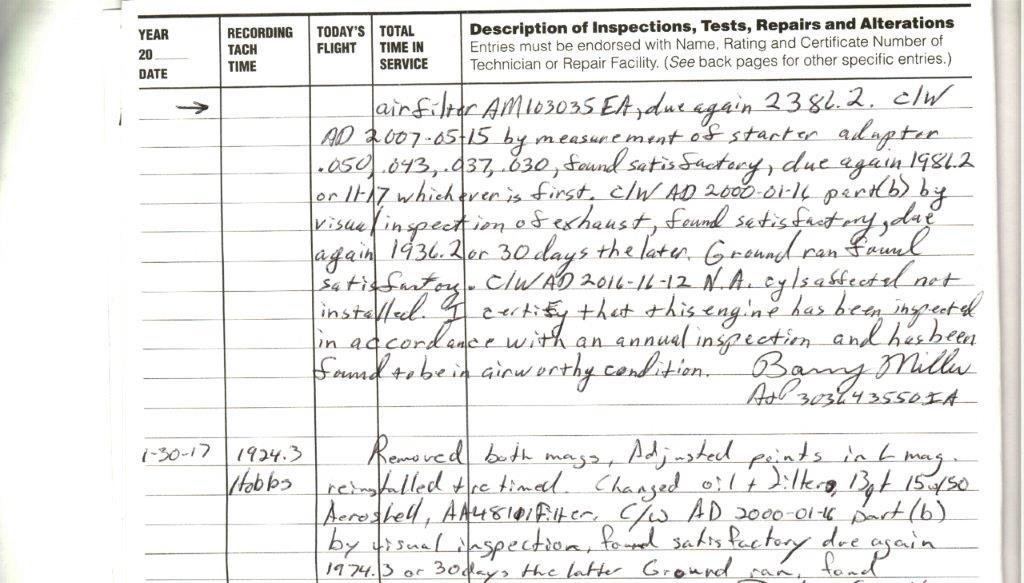 YEAR
20____
DATE
RECORDING
TACH
TIME
TODAY'S
FLIGHT
TOTAL
TIME IN
SERVICE
Description of Inspections, Tests, Repairs and Alterations
Entries must be endorsed with Name, Rating and Certificate Number of
Technician or Repair Facility. (See back pages for other specific entries.)
→ air filter AM103035EA, due again 2386.2. C/W
AD 2007-05-15 by measurement of starter adapter
.050, .043, .037, .030, found satisfactory, due again 1986.2
or 11-17 whichever is first. C/W AD 2000-01-16 part(b) by
visual inspection of exhaust, found satisfactory, due
again 1936.2 or 30 days the later. Ground ran found
satisfactory. C/W AD 2016-16-12 N.A. cyls affected not
installed. I certify that this engine has been inspected
in accordance with an annual inspection and has been
found to be in airworthy condition. Barry Miller
A&P 303643550IA
1-30-17 1924.3 Removed both mags, Adjusted points in L mag.
Hobbs reinstalled + retimed. Changed oil + filter, 13qt 15w50
Aeroshell, AA48101 Filter. C/W AD 2000-01-16 part (b)
by visual inspection, found satisfactory due again
1974.3 or 30 days the latter Ground ran, found